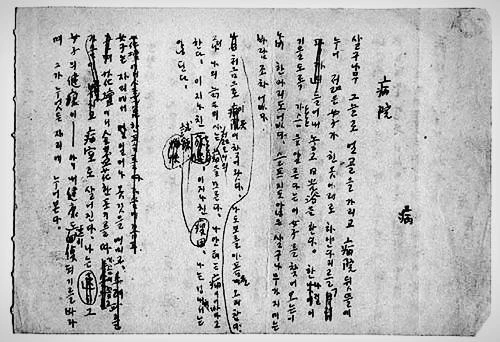 病
病院
살구나무 그늘로 얼골을 가리고, 病院뒷뜰에
누어, 젊은 女子가 흰옷아래로 하얀다리를
드려내 놓고 日光浴을 한다. 한나절이
기울도록 가슴을 알른다는 이 女子를 찾어 오는 이,
나비 한마리도 없다. 슬프지도 않은 살구나무가지에는
바람조차 없다.
처음으로 이곳에 찾어왔다. 나도 모를 아픔을 오래 참다
그러나 나의 늙은 의사는 젊은이의 病을 모른다. 나한테는 病이 없다고
한다. 이 지나친 試鍊, 이 지나친 疲勞, 나는 성내서는
않된다.
女子는 자리에서 일어나 옷깃을 여미고
花壇에서 金盞花 한포기를 따
가슴에 꼽고 病室안으로 살어진다. 나는 그
女子의 健康이— 아니 내 健康도 速히 回復되기를 바라
며 그가 누엇든 자리에 누어본다.